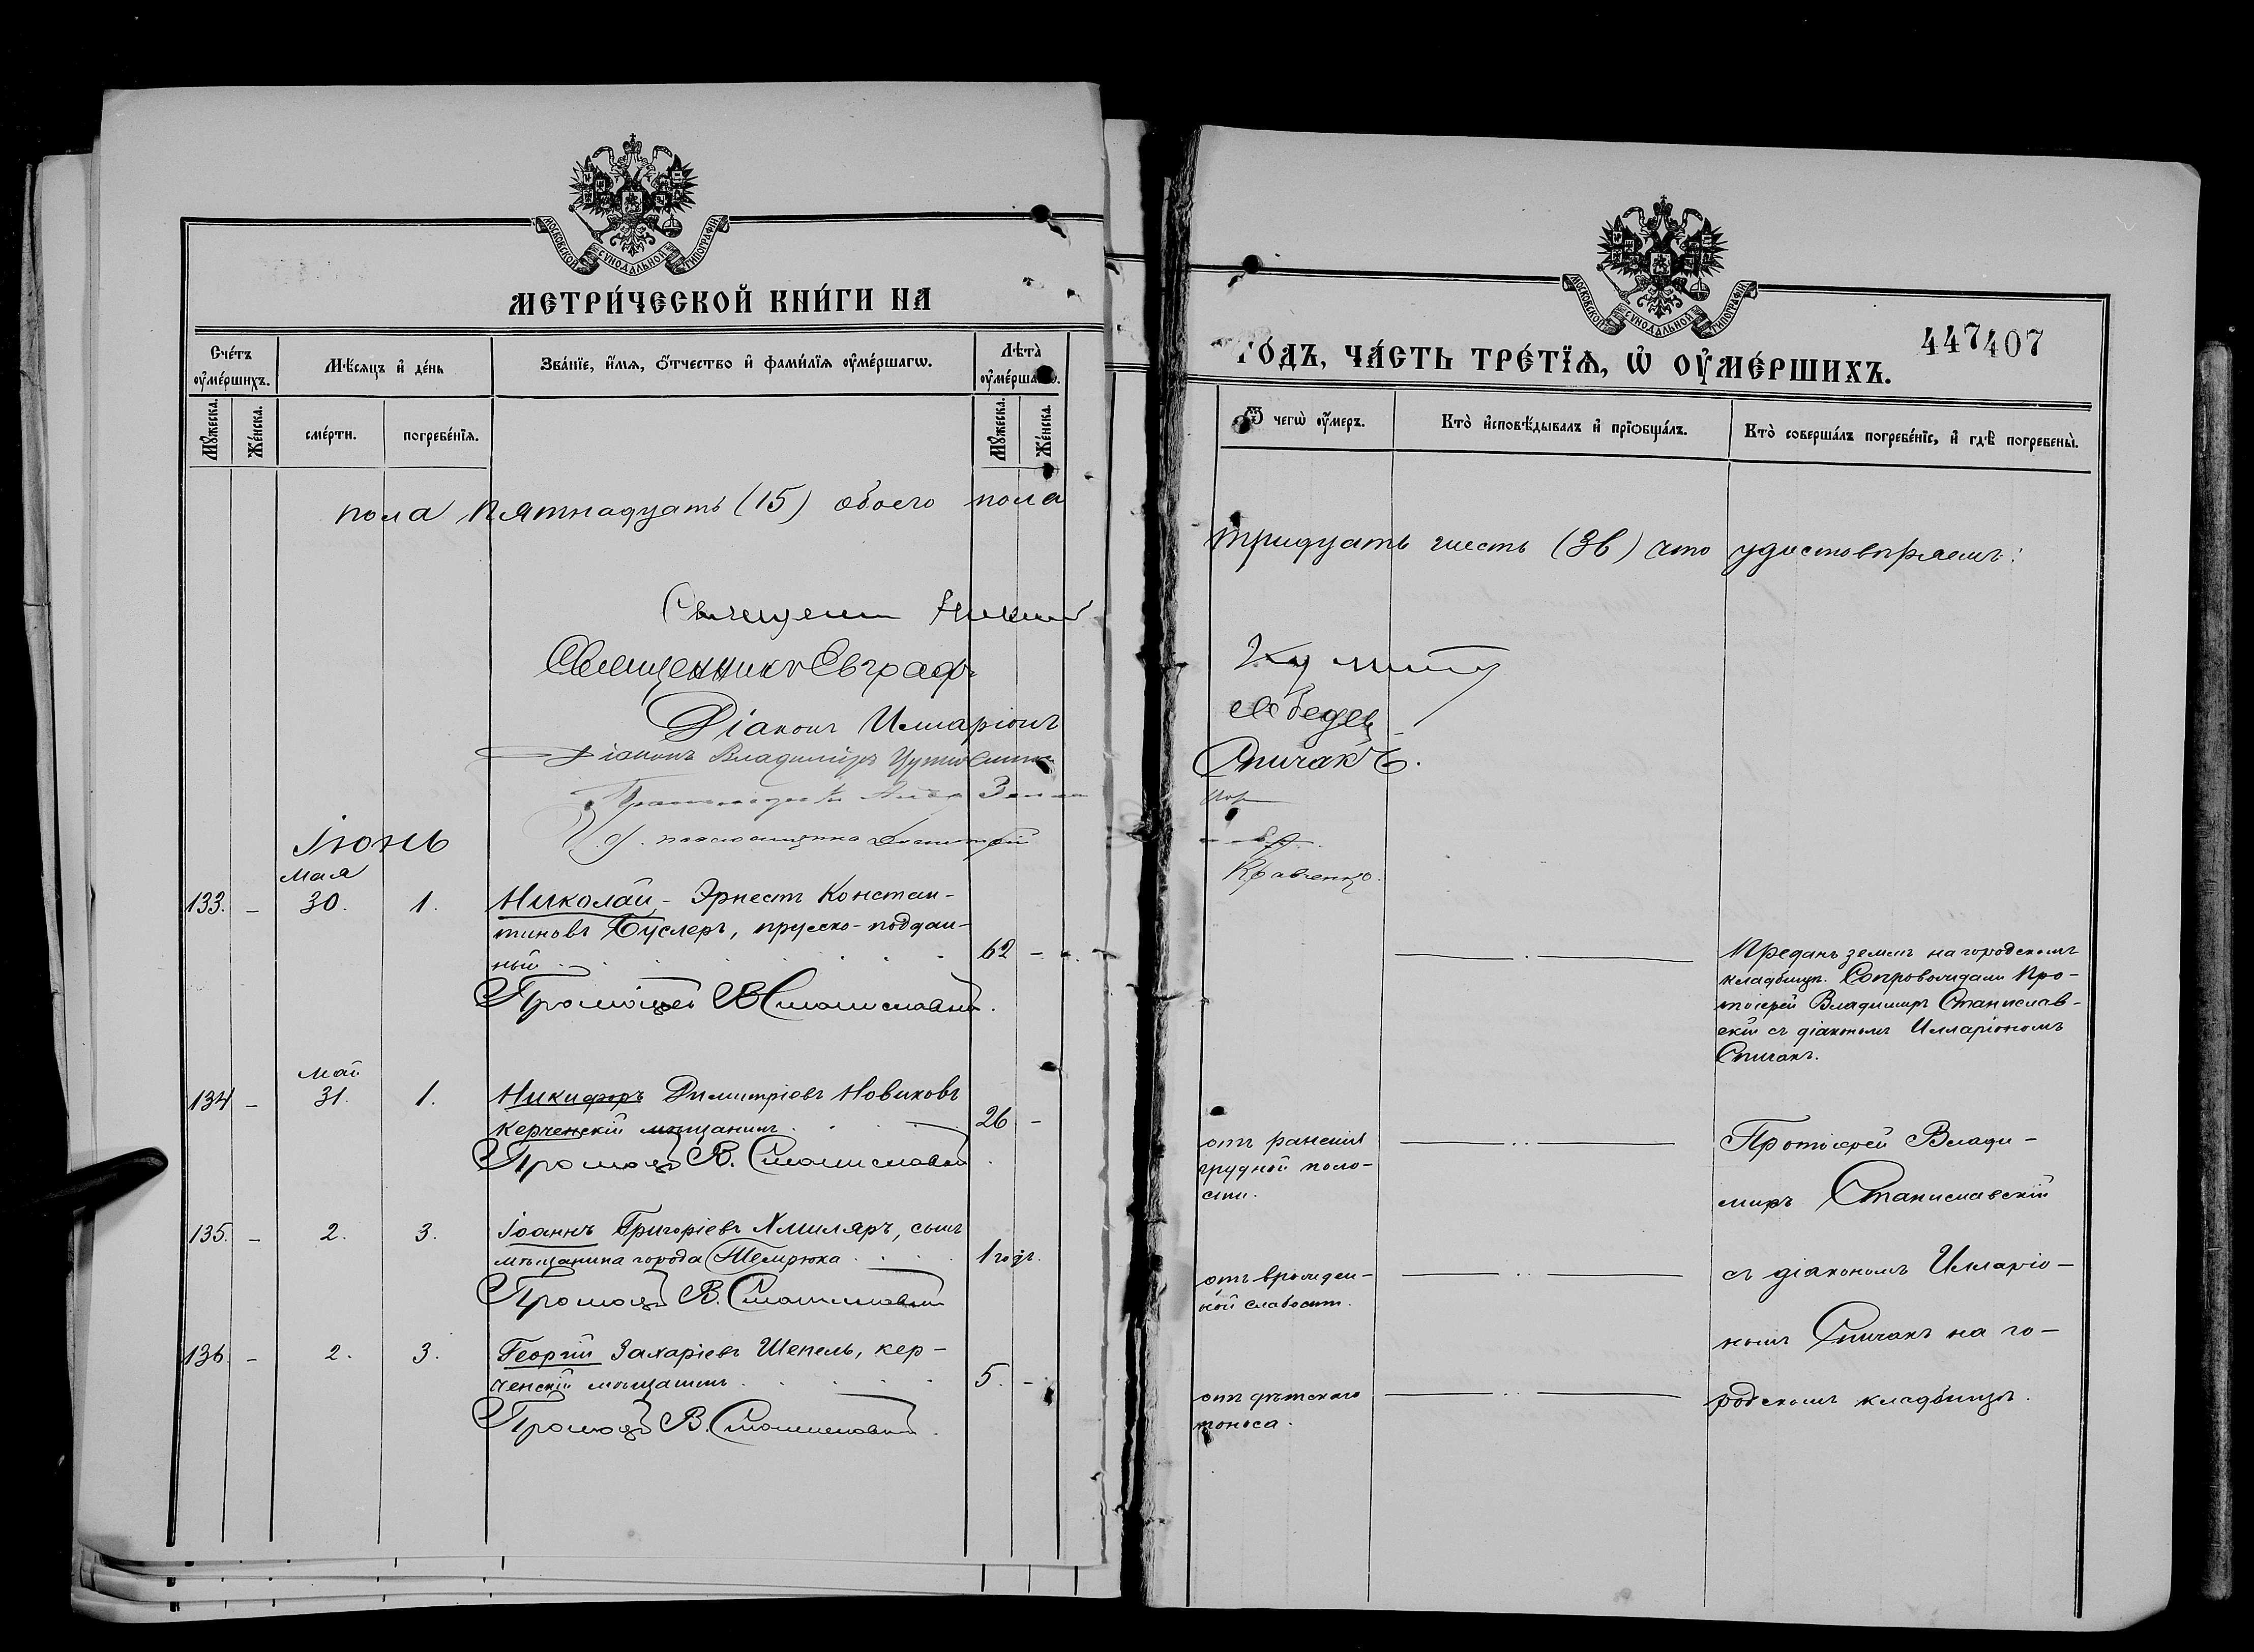 МОСКОВСКОЙ СѴНОДАЛЬНОЙ ТИПОГРАФІИ
МЕТРИ́ЧЕСКОЙ КНИ́ГИ НА
Сче́тъ ѹ҆ме́ршихъ.
Мѣ́сяцъ и҆ де́нь
Зва́нїе, и҆́мѧ, ѻ҆́тчество и҆ фами́лїѧ ѹ҆ме́ршагѡ.
Лѣта̀ ѹ҆ме́ршагѡ.
Мꙋ́жеска.
Же́нска.
сме́рти.
погребе́нїѧ.
Мꙋ́жеска.
Же́нска.
пола пятнадцать (15) обоего пола
Священникъ Евграфъ
Діаконъ Илларіонъ
Діаконъ Владиміръ
Іюнь
мая
133. – 30. 1. Николай - Эрнестъ Констан-
тиновъ Буслеръ, прусско-поддан-
ный 62 –
Протоіерей В. Станиславскій.
май
134 – 31. 1. Никифоръ Димитріевъ Новиковъ
керченскій мѣщанинъ 26 –
Протоіер. В. Станиславскій
135. – 2. 3. Іоаннъ Григоріевъ Хмиляръ, сынъ
мѣщанина города Темрюка 1 годъ.
Протоіер. В. Станиславскій
136. – 2. 3. Георгій Захаріевъ Шепель, кер-
ченскій мѣщанинъ 5. –
Протоіер. В. Станиславскій
МОСКОВСКОЙ СѴНОДАЛЬНОЙ ТИПОГРАФІИ
447 407
ГО́ДЪ, ЧА́СТЬ ТРЕ́ТЇѦ, Ѡ҆ ОУ҆МЕ́РШИХЪ.
Ѿ чегѡ̀ ѹ҆́меръ.
Кто̀ и҆сповѣ́дывалъ и҆ прїѡбща́лъ.
Кто̀ соверша́лъ погребе́нїе, и҆ гдѣ̀ погребены̀.
тридцать шесть (36) что удостовѣряемъ:
Лебедевъ
Спичакъ.
Кравченко.
Преданъ землѣ на городскомъ
кладбищѣ. Сопровождали Про-
тоіерей Владиміръ Станислав-
скій съ діакономъ Илларіономъ
Спичакъ.
отъ раненія
грудной поло-
сти.
Протоіерей Влади-
миръ Станиславскій
отъ врожден-
ной слабости.
съ діакономъ Илларіо-
номъ Спичакъ на го-
отъ дѣтского
поноса.
родскомъ кладбищѣ.